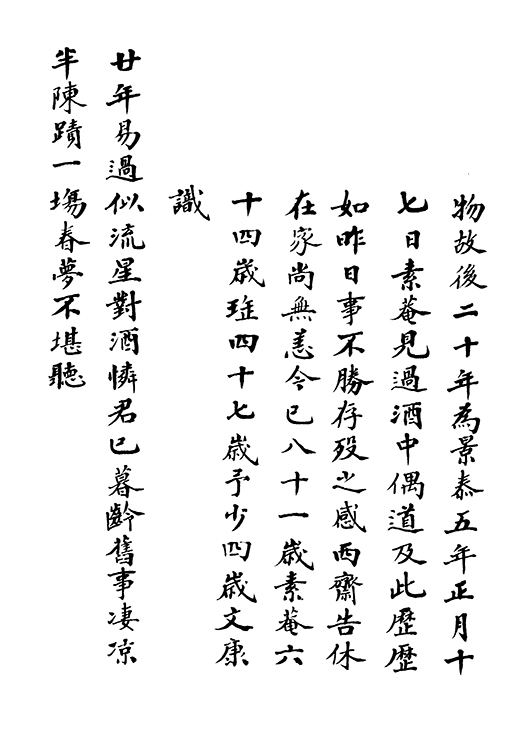 物故後二十年為景泰五年正月十
七日素菴見過酒中偶道及此歷歷
如昨日事不勝存歿之感西齋告休
在家尚無恙今已八十一歲素菴六
十四歲珄四十七歲予少四歲文康
識
廿年易過似流星對酒憐君已暮齡舊事凄凉
半陳蹟一場春夢不堪聽